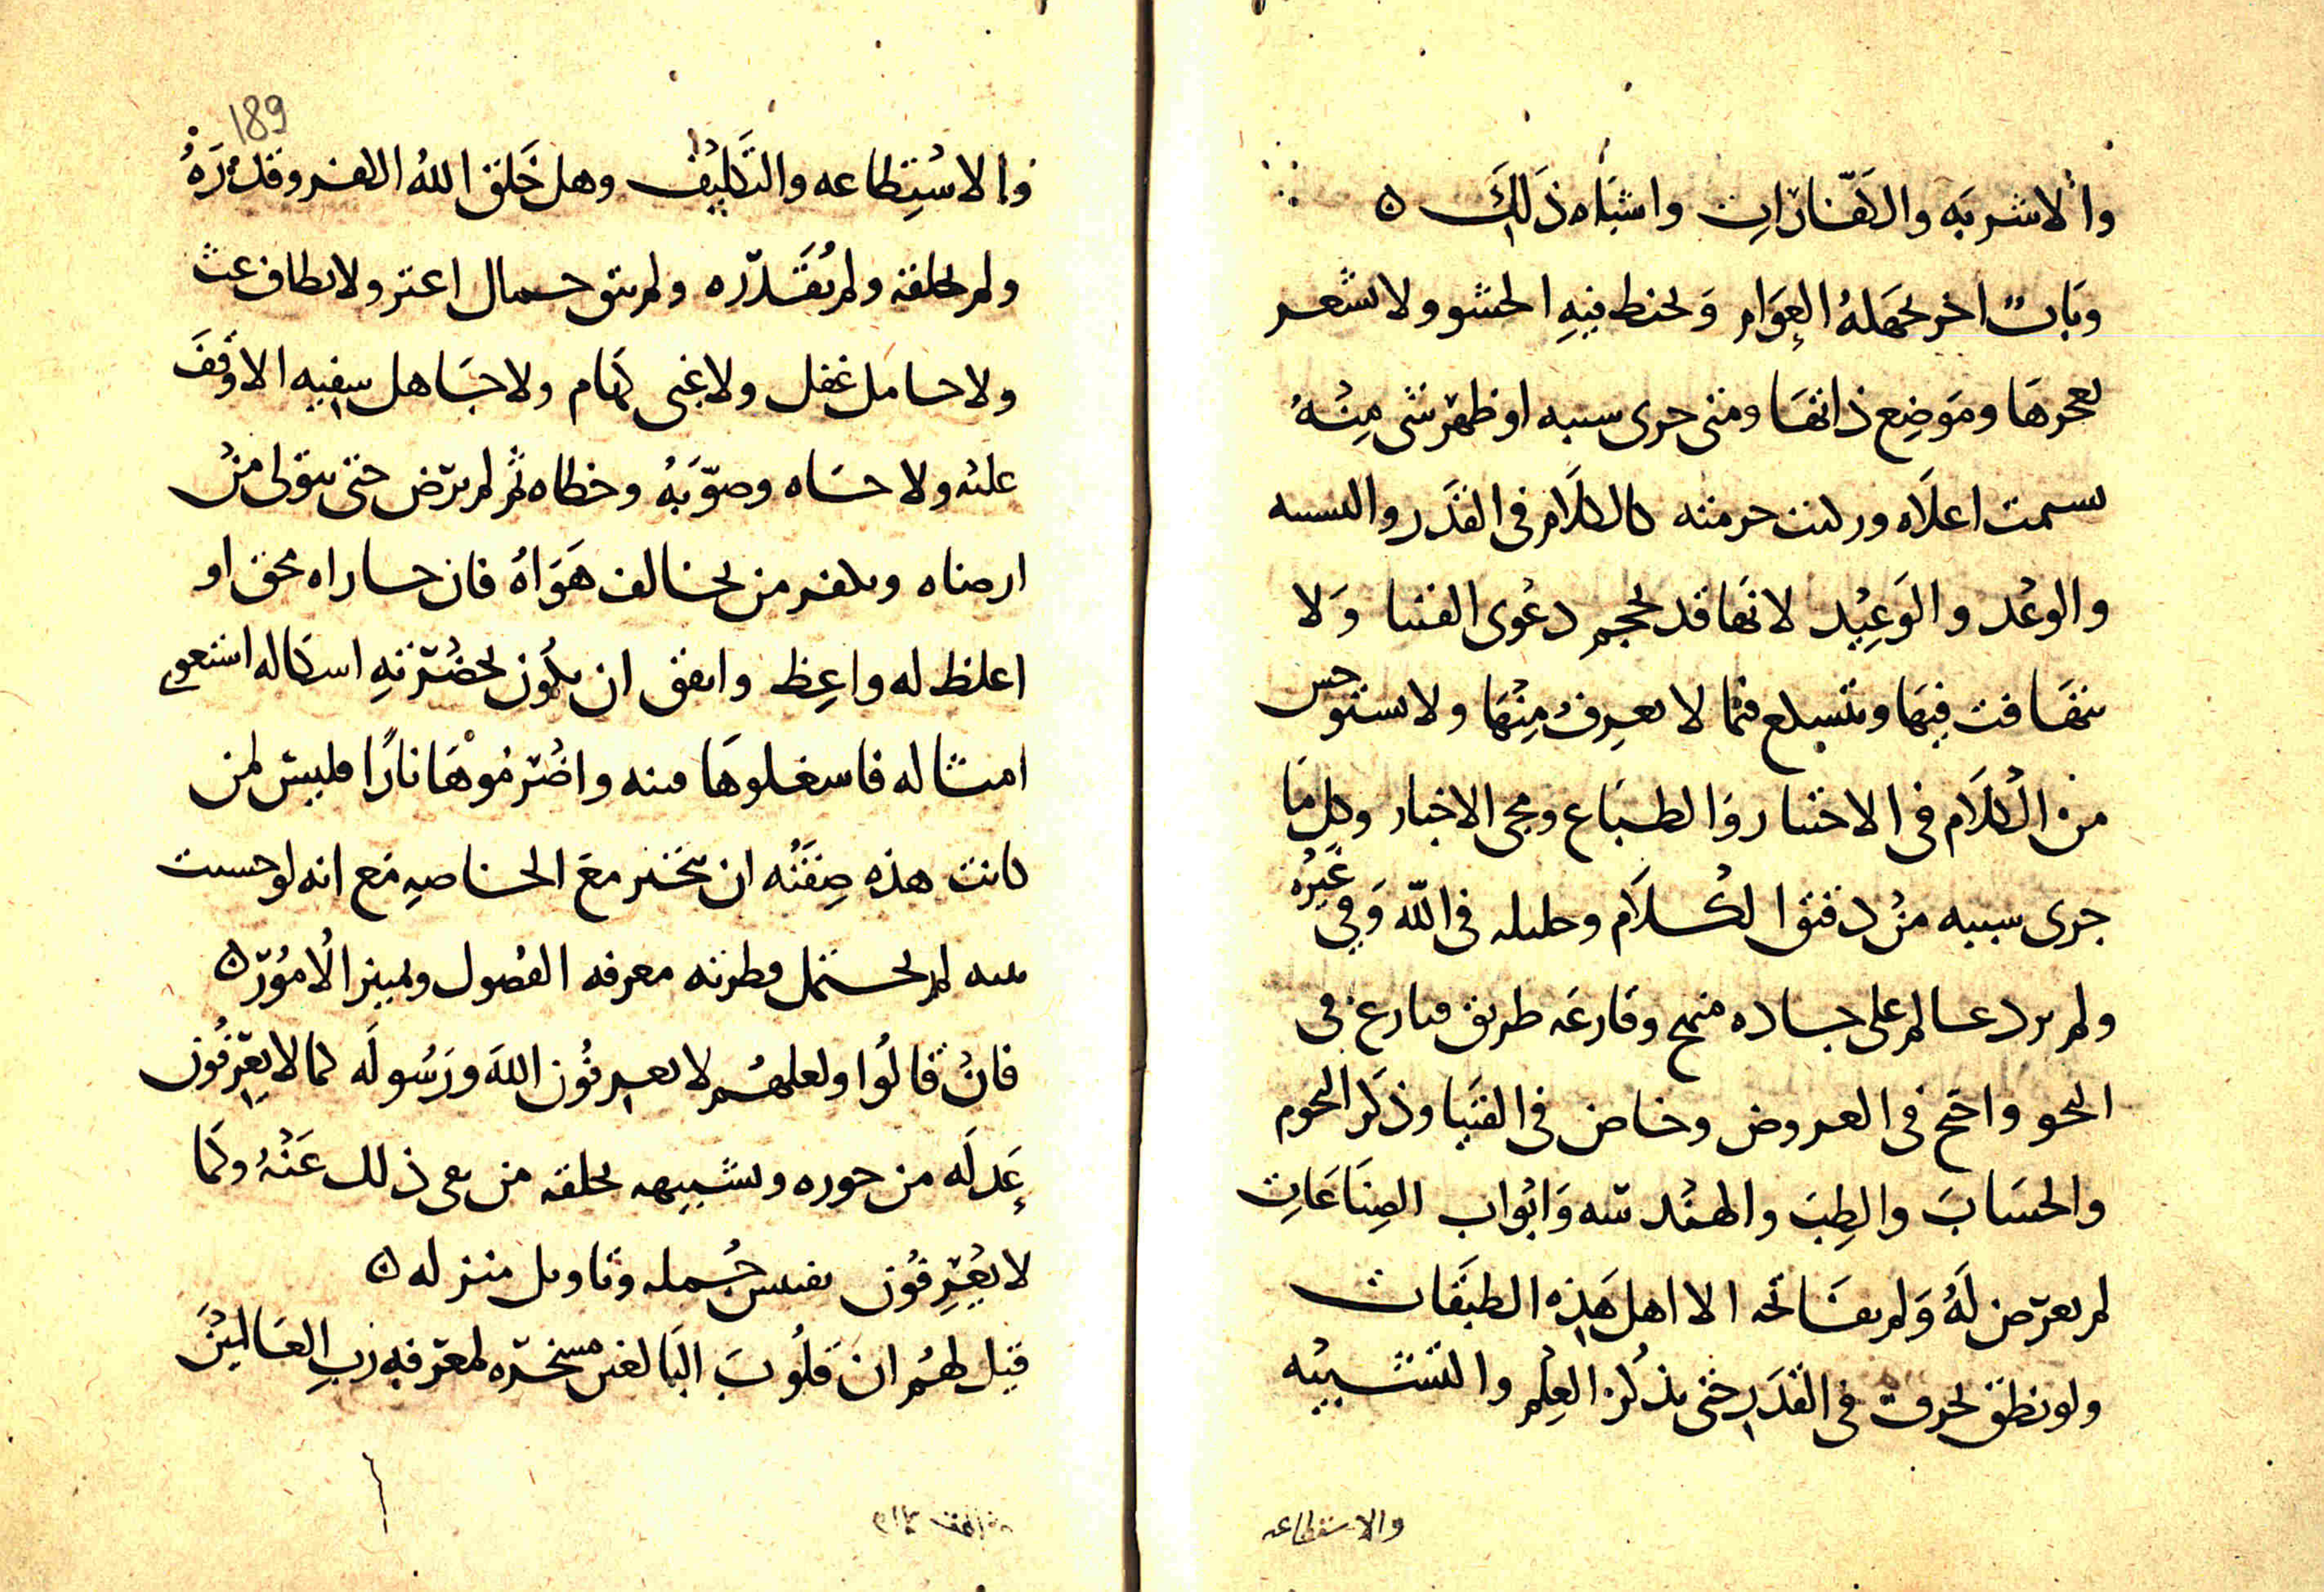 والاشربَه والكَفّارَاتِ واشبَاه ذَلِكَ ه
وَبَابٌ اخر يجهَلهُ العِوَام وَيخبط فيهِ الحشو ولا تشعر
بعجزهَا ومَوَضِع دائهَا ومتى جرى سببه او ظهر شى مِنْهُ
تسمت اعلَاه وركبت حرمته كالكلَام فى القَدَر والتشبيه
والوعْد والوَعِيْد لانهَا قد لحجم دعْوى الفتيا وَلا
تتهَافت فيهَا وتتسكع فيما لا تعرِف مِنْهَا ولا تستوحش
من الْكلَام فى الاختيار وَالطبَاع ومجى الاخبار وكل مَا
جرى سببه منْ دقيق الكَلَام وجليله فى اللّه وَفي غَيْرِه
ولم برد عالم على جاده منهج وقارعَه طريق فنازع فى
النحو واحتج فى العروض وخاض فى الفتيا وذكر النجوم
والحسَابَ والطِبَ والهنْدسَه وَابْوَاب الصِنَاعَاتِ
لم يعرض لَهُ وَلم يفَاتحه الا اهل هَذِه الطبقَات
ولو نطق بحرف فى القدَر حَتى يذكْر العِلْم والتشبيْه
والاستطاعه
189
والاسْتِطاعه والتَكلِيْف وهل خَلق اللهُ الكفر وقدَّرَهُ
ولم يخلقه ولم يُقَدّره ولم يبق حمال اعثر ولا بطاف عث
ولا خامل غفل ولا غبى كهَام ولا جَاهل سفيه الا وَقفَ
عليْه ولاحَاه وصوّبَهُ وخطاه ثم لم يرَض حتى يتولى منْ
ارضاه ويكفر من يخالف هَوَاهُ فان جاراه محق او
اغلظ له واعِظ واتفق ان يكُون بحضْرَتهِ اشكاله استغوى
امثاله فاشعلوهَا فتنه واضْرَمُوْهَا نارًا فليس لمن
كانت هذه صِفتُه ان يتحيز معَ الخاصهِ مَع انه لو حسنت
نيته لم تحتمل فطرته معرفه الفصُول وتمييز الْامُوْر ه
فانْ قَالُوا ولعلهُم لا يعرفُون اللهَ ورَسُولَه كما لا يعْرِفُون
عَدلَه من جوره وتشبيهه بخلقه من نفى ذلك عَنْهُ وكَمَا
لا يعْرِفوُن تفسير جُمله وتاويل منزله ه
قيل لهُم انَ قلُوبَ البَالغين مسخرَه لمعَرفهِ رَبِ العَالمِيْنَ